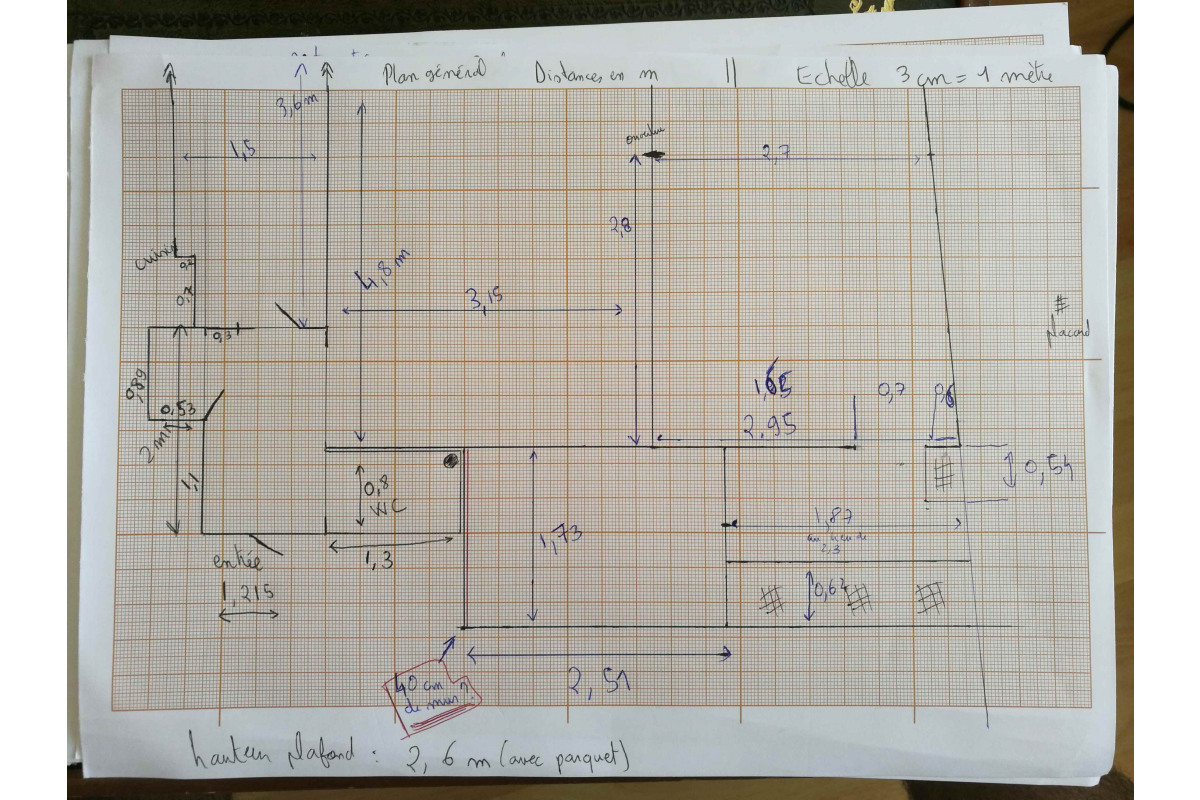 Plan général Distances en m || Echelle 3 cm = 1 mètre
3,6 m
1,5
ouverture
2,7
2,8
4,8 m
cuisine
0,2
0,7
3,15
placard
0,3
0,89
0,53
2 m
1,1
1,65
0,7
0,6
2,95
0,54
0,8
WC
1,73
1,87
au lieu de
2,3
entrée
1,3
0,62
1,215
2,51
40 cm
de mur ?
hauteur plafond : 2,6 m (avec parquet)